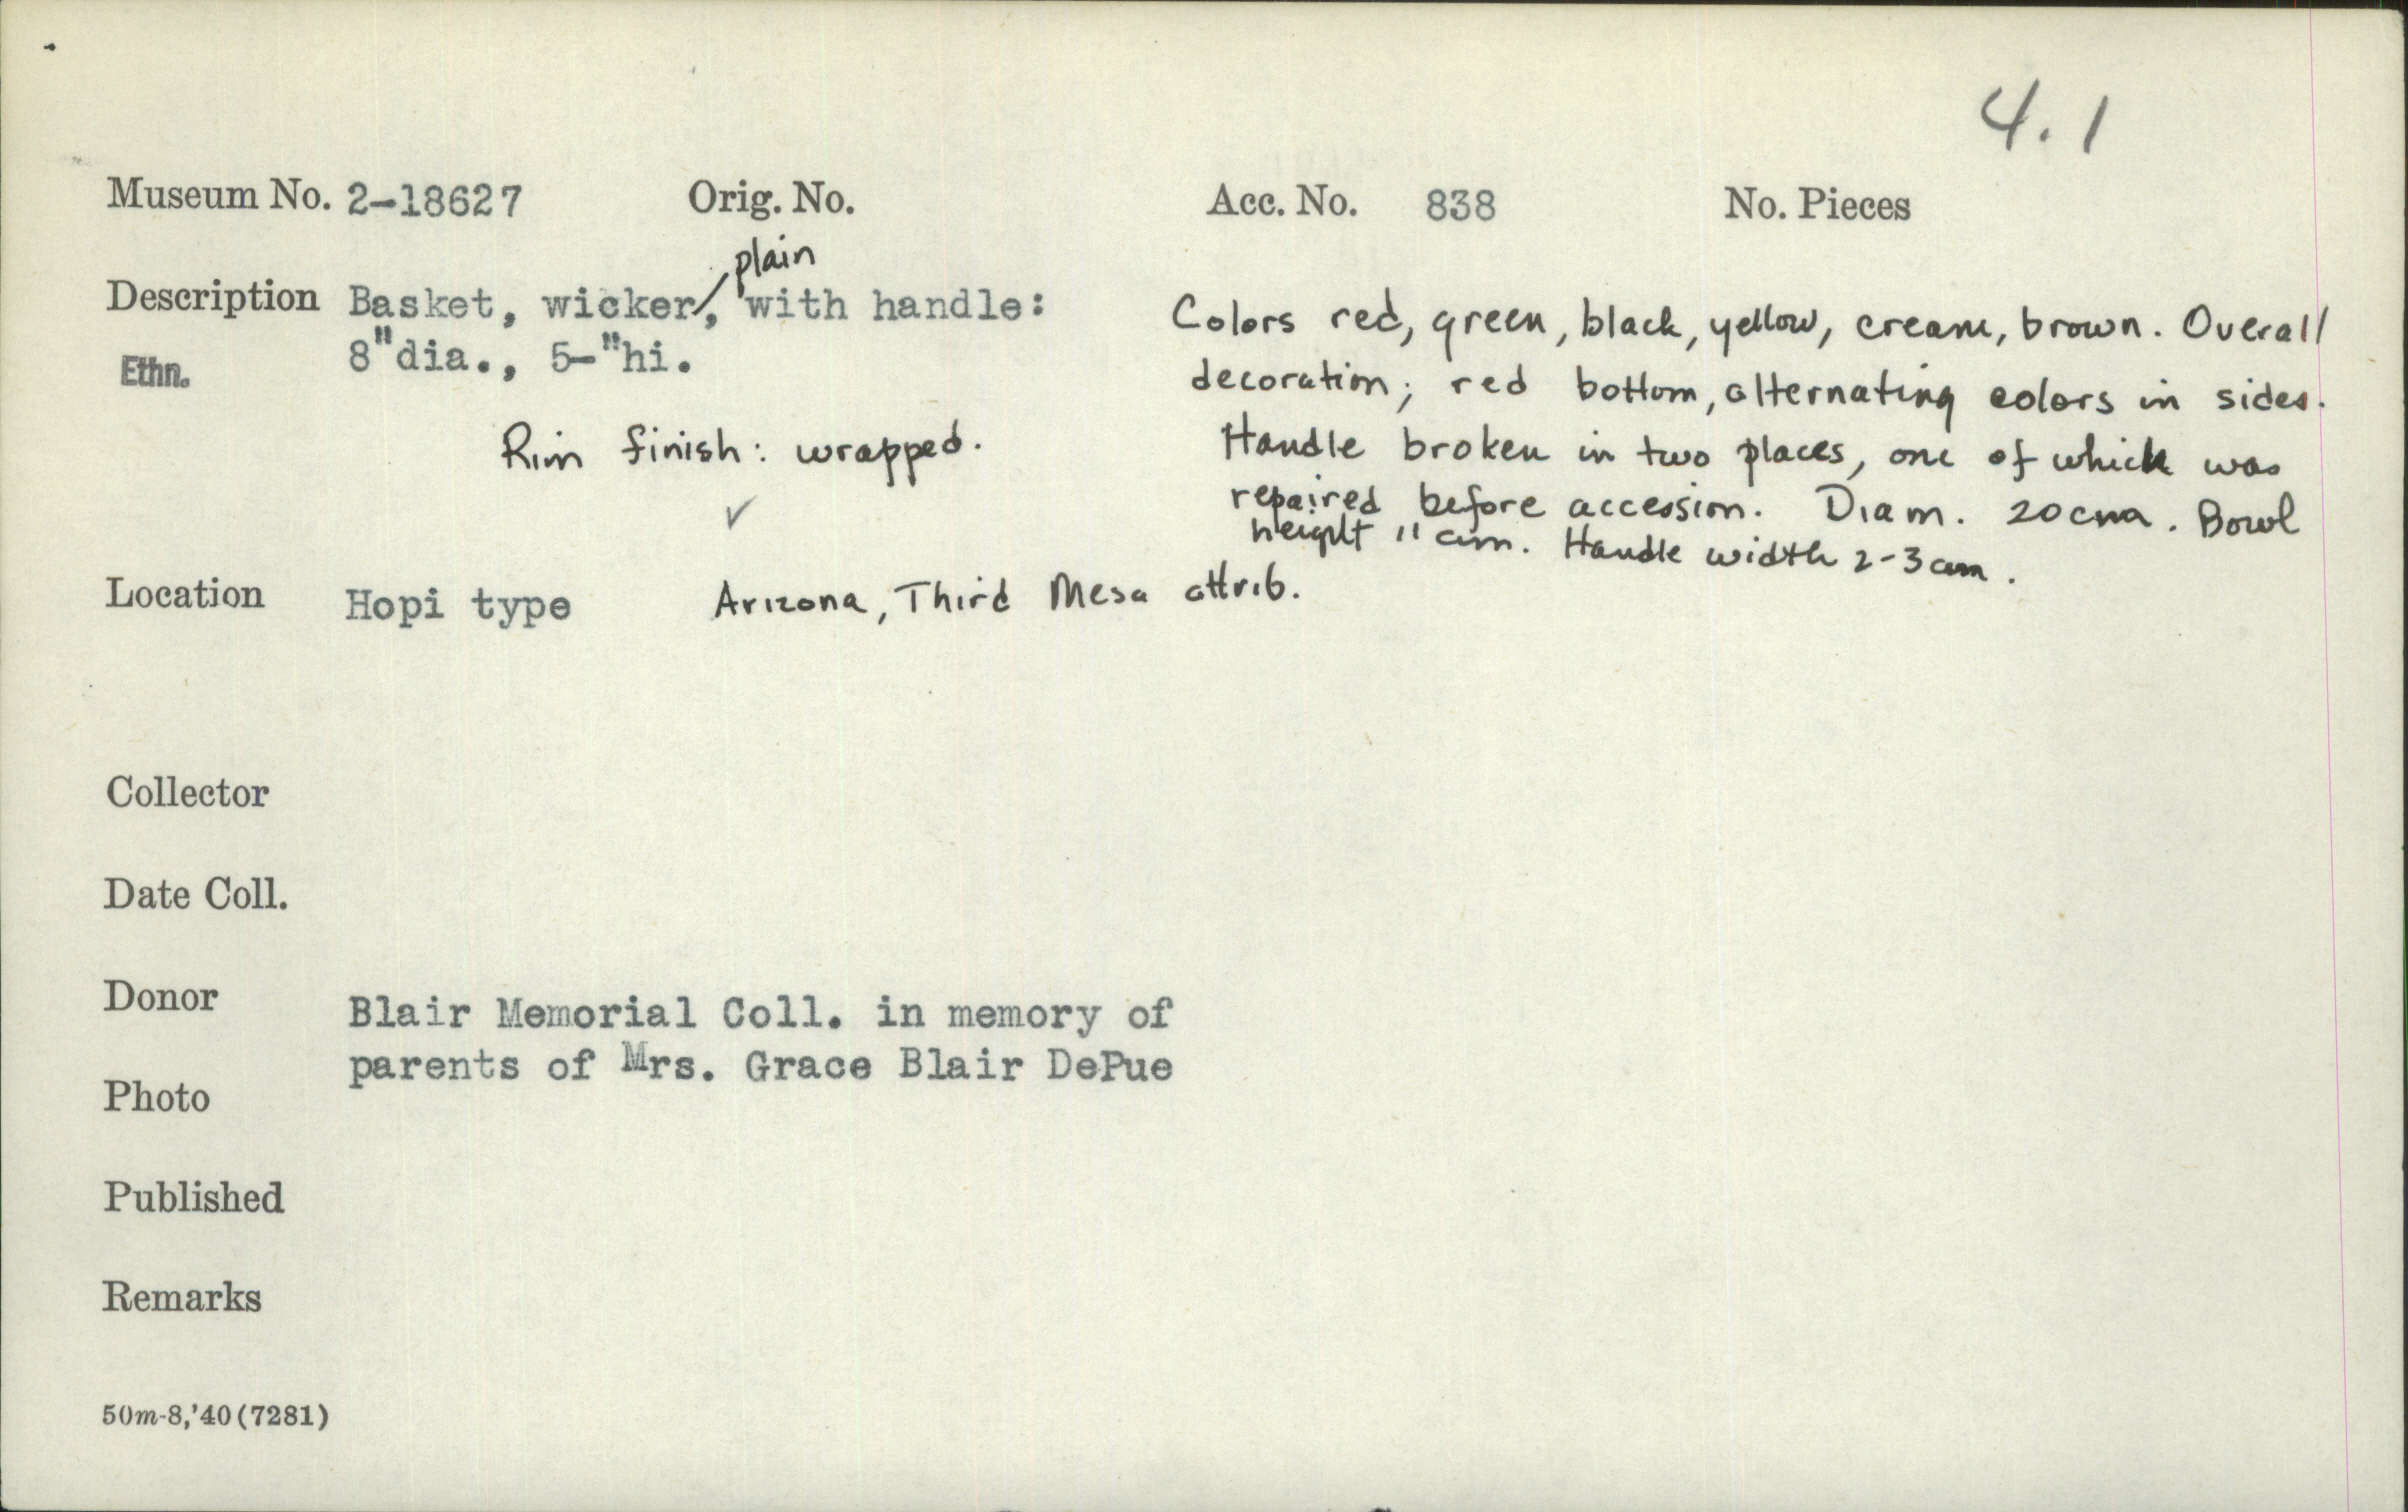 4.1
Museum No. 2-18627 Orig. No. Acc. No. 838 No. Pieces
plain
Description Basket, wicker/, with handle:
8"dia., 5-"hi.
Ethn.
Rim finish: wrapped.
✓
Colors red, green, black, yellow, cream, brown. Overall
decoration; red bottom, alternating colors in sides.
Handle broken in two places, one of which was
repaired before accession. Diam. 20cm. Bowl
height 11 cm. Handle width 2-3 cm.
Location Hopi type Arizona, Third Mesa attrib.
Collector
Date Coll.
Donor Blair Memorial Coll. in memory of
parents of Mrs. Grace Blair DePue
Photo
Published
Remarks
50m-8,'40(7281)